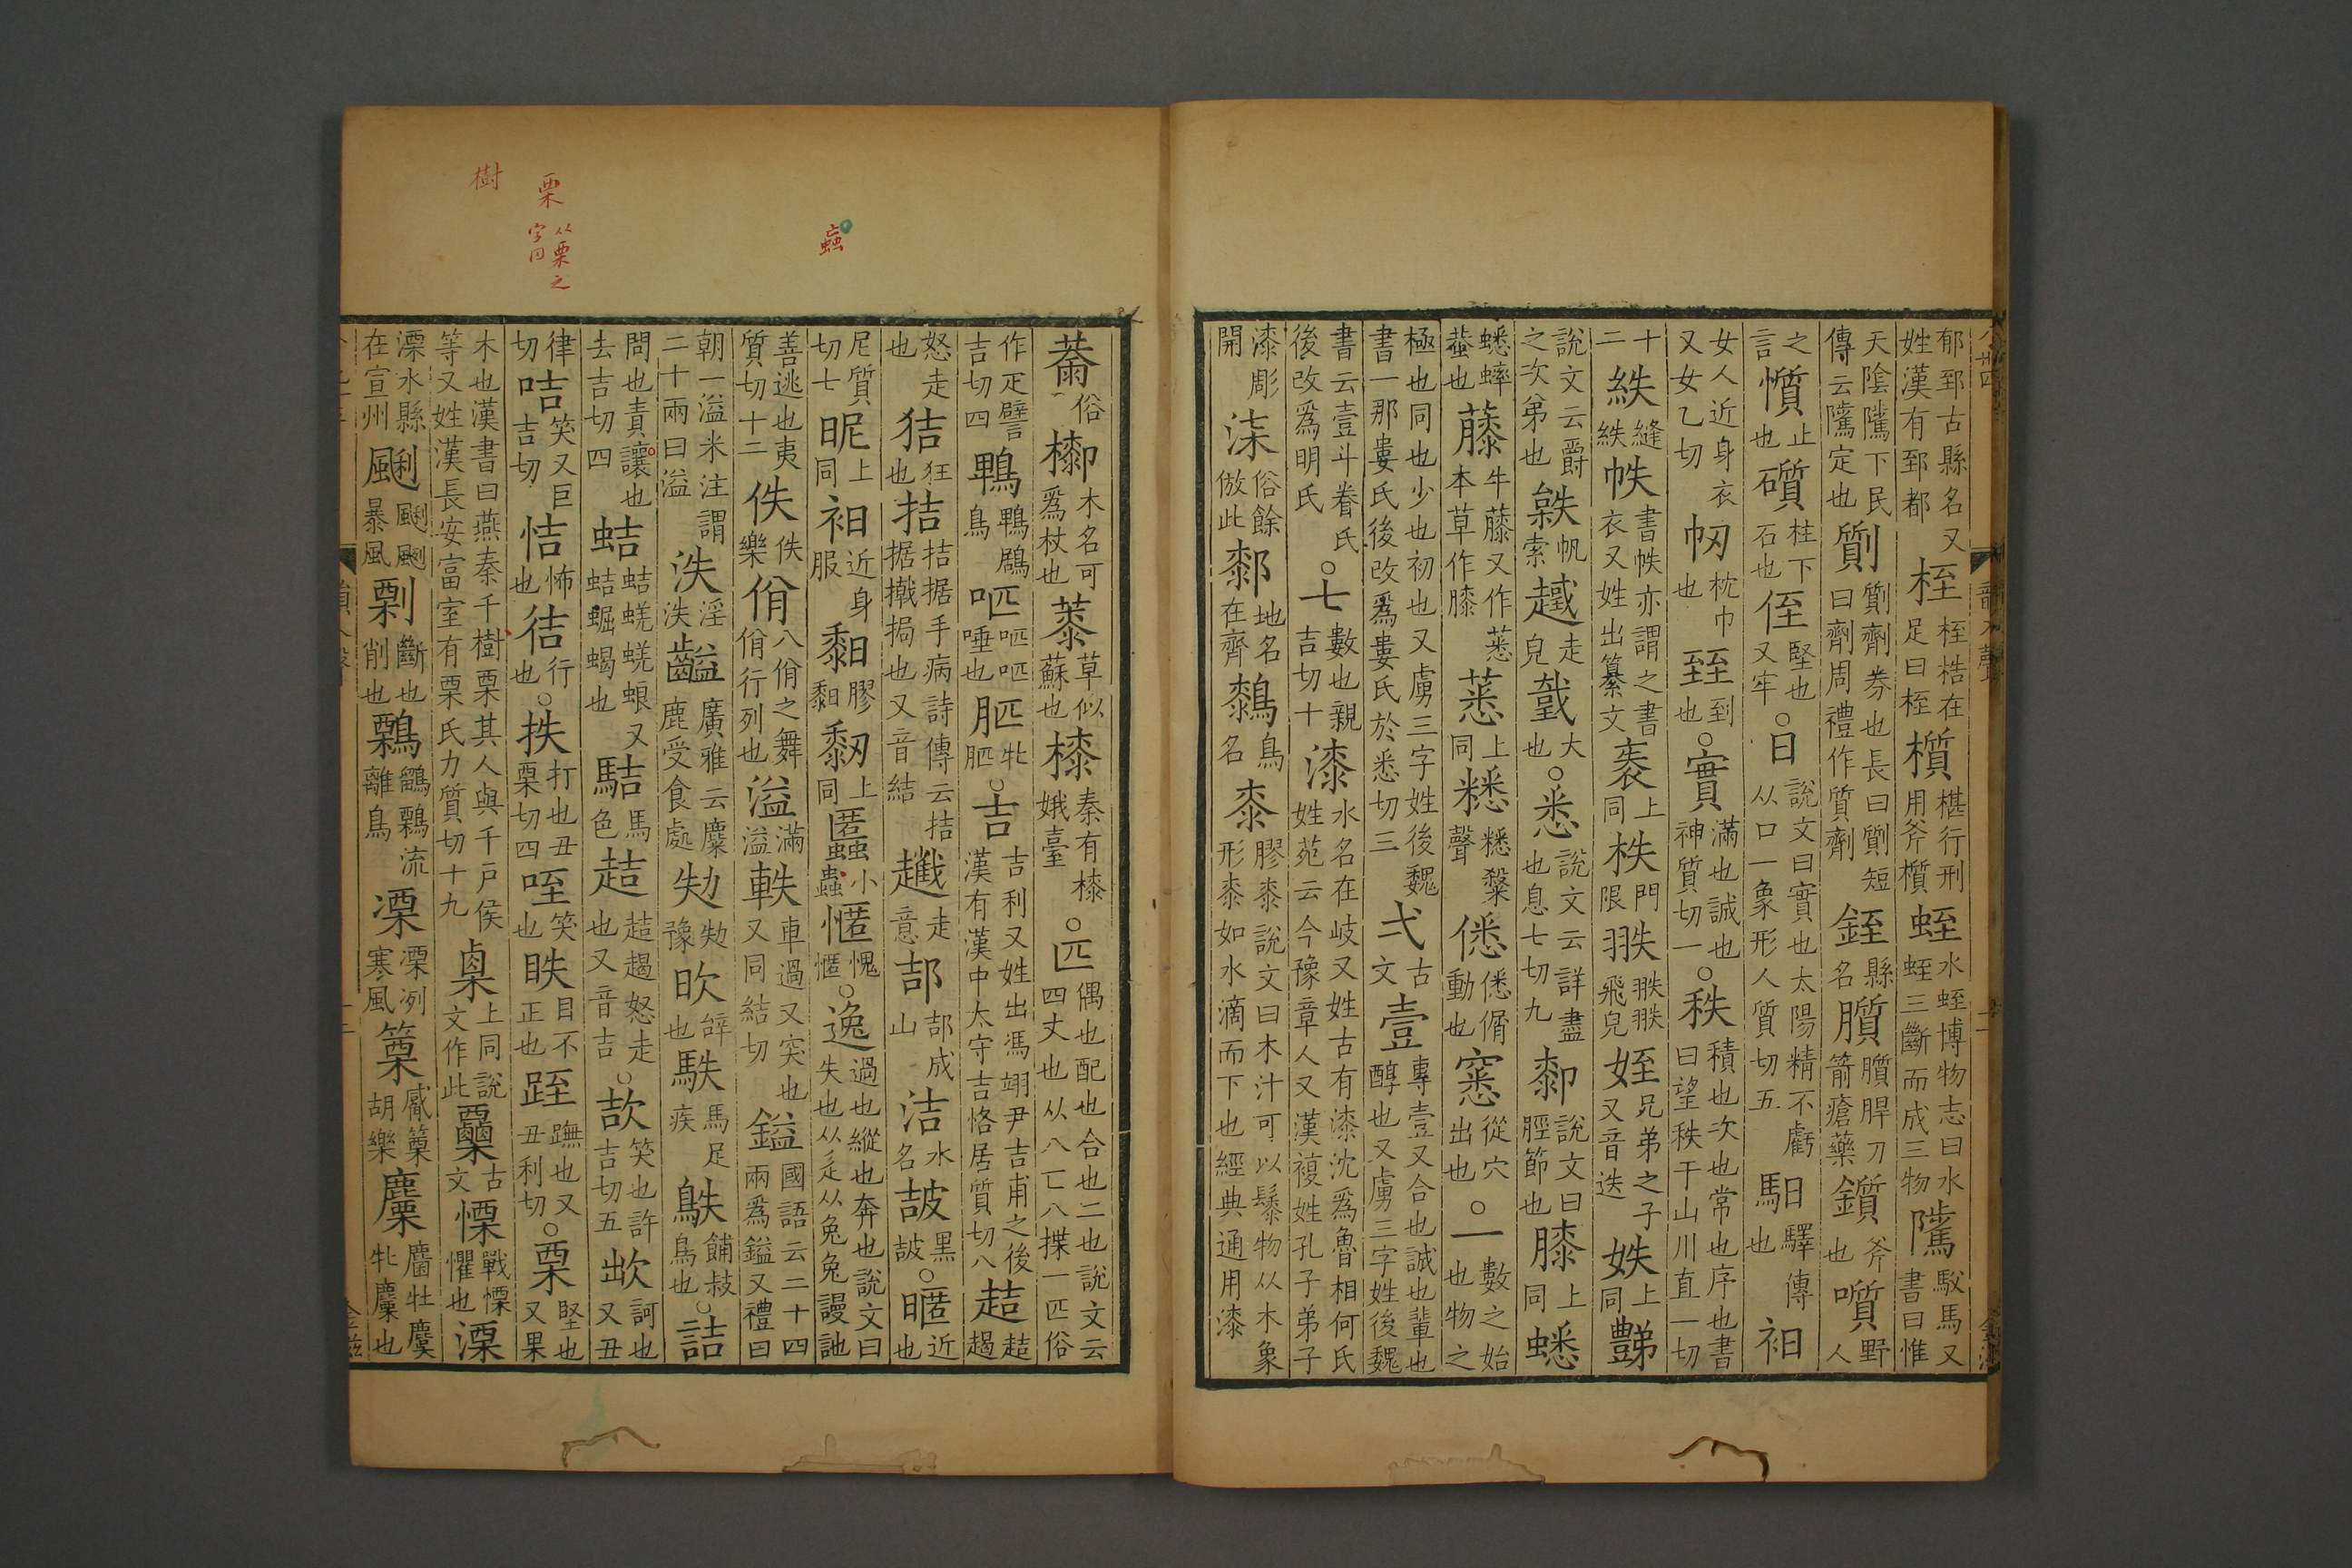 郁郅古縣名又姓漢有郅都桎桎梏在足曰桎櫍椹行刑用斧櫍蛭水蛭博物志曰水蛭三斷而成三物騭駁馬又書曰惟
天陰騭下民傳云騭定也劕劕劑券也長曰劕短曰劑周禮作質劑銍縣名䐜䐜䏷刀箭瘡藥鑕斧也噴野人
之言懫止也礩柱下石也侄堅也又牢○日說文曰實也太陽精不虧从口一象形人質切五馹驛傳也衵
女人近身衣又女乙切㠴枕巾也臸到也○實滿也誠也神質切一○秩積也次也常也序也書曰望秩于山川直一切
十二紩縫紩帙書帙亦謂之書衣又姓出纂文袠上同柣門限翐翐翐飛皃姪兄弟之子又音迭妷上同豑
說文云爵之次弟也䄇帆索趩走皃𢧜大也○悉說文云詳盡也息七切九厀說文曰脛節也膝上同蟋
蟋蟀蛬也藤牛藤又作蒠本草作膝蒠上同糏糏糳聲僁僁偦動也窸從穴出也○一數之始也物之
極也同也少也初也又虜三字姓後魏書一那婁氏後改爲婁氏於悉切三弌古文壹專壹又合也誠也輩也醇也又虜三字姓後魏
書云壹斗眷氏後改爲明氏○七數也親吉切十漆水名在岐又姓古有漆沈爲魯相何氏姓苑云今豫章人又漢複姓孔子弟子
漆彫開柒俗餘倣此䣛地名在齊鶈鳥名桼膠桼說文曰木汁可以髤物从木象形桼如水滴而下也經典通用漆
䓭俗䣛木名可爲杖也蔾草似蘇也榛秦有榛娥臺○匹偶也配也合也二也說文云四丈也从八匸八揲一匹俗
作疋譬吉切四鴄鴄鶋鳥㕸㕸㕸唾也䏘牝䏘○吉吉利又姓出馮翊尹吉甫之後漢有漢中太守吉恪居質切八趌趌趨
怒走也狤狂也拮拮据手病詩傳云拮据撠挶也又音結趰走意郆郆成山洁水名䛐黑䛐○暱近也
尼質切七昵上同衵近身服䵒膠䵒䵑上同䘌小蟲㥾愧㥾○逸過也縱也奔也說文曰失也从辵从兔兔謾訑
善逃也夷質切十二佚佚樂佾八佾之舞佾行列也溢滿溢軼車過又突也又同結切鎰國語云二十四兩爲鎰又禮曰
朝一溢米注謂二十兩曰溢泆淫泆齸廣雅云麋鹿受食處劮劮豫欥辝也駃馬足疾鴩餔敊鳥也○詰
問也責讓也去吉切四蛣蛣蜣蜣蜋又蛣蝹蝎也䮀馬色趌趌趨怒走也又音吉○欯笑也許吉切五欪訶也又丑
律切咭笑又巨吉切㤂怖也徍行也○抶打也丑栗切四咥笑也眣目不正也跮蹠也又丑利切○栗堅也又果
木也漢書曰燕秦千樹栗其人與千戶侯等又姓漢長安富室有栗氏力質切十九㮚上同說文作此𠧪古文慄戰慄懼也溧
溧水縣在宣州颲颲颲暴風㓼斷也削也鷅鶹鷅流離鳥凓凓冽寒風篥觱篥胡樂麜麕牡麌牝麜也
樹
栗
从栗之字同
蝨